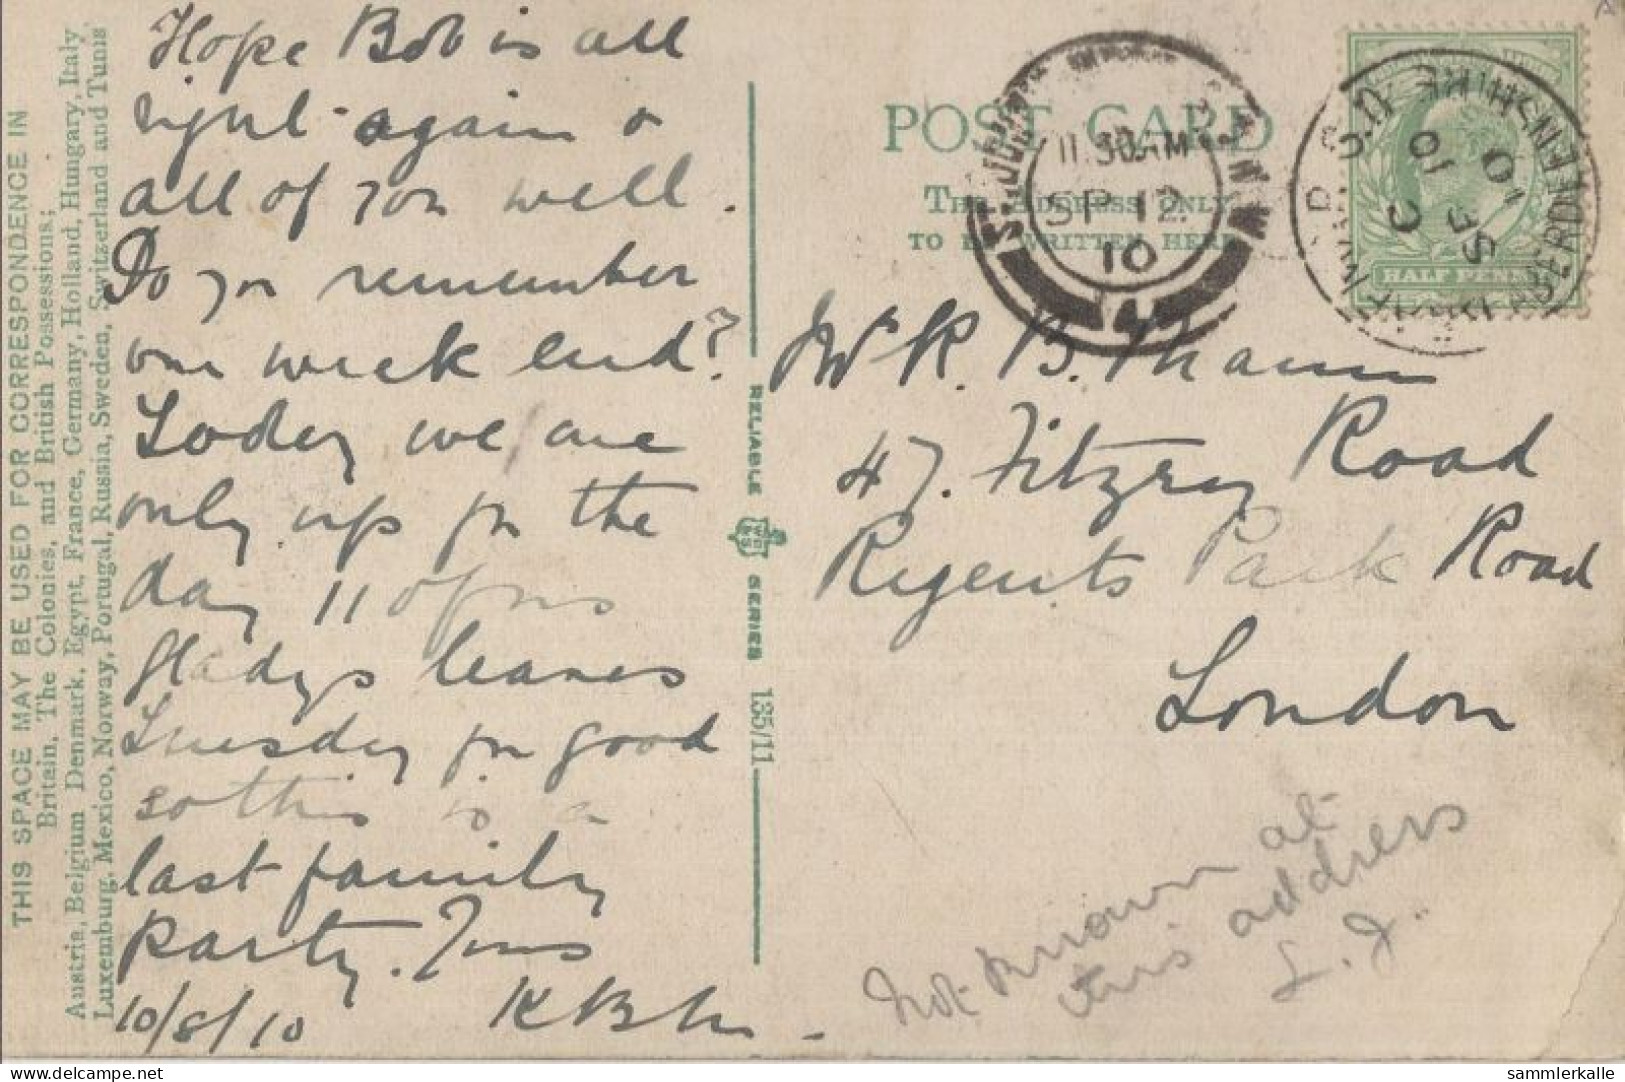 THIS SPACE MAY BE USED FOR CORRESPONDENCE IN
Britain, The Colonies, and British Possessions;
Austria, Belgium Denmark, Egypt, France, Germany, Holland, Hungary, Italy
Luxemburg, Mexico, Norway, Portugal, Russia, Sweden, Switzerland and Tunis
Hope Bob is all
right again &
all of you well.
Do you remember
our week end?
Today we are
only up for the
day 11 of us
Gladys leaves
Tuesday for good
so this is a
last family
party. Yrs
10/8/10
RELIABLE
SERIES
135/11
POST CARD
THE ADDRESS ONLY
TO BE WRITTEN HERE
11.30AM
SP 12
10
4
N.W
HALF PENNY
ABERDEENSHIRE
C
SE
10
10
Mr R. B. Mann
47. Fitzroy Road
Regents Park Road
London
Not known at
this address
L.J.
www.delcampe.net
sammlerkalle